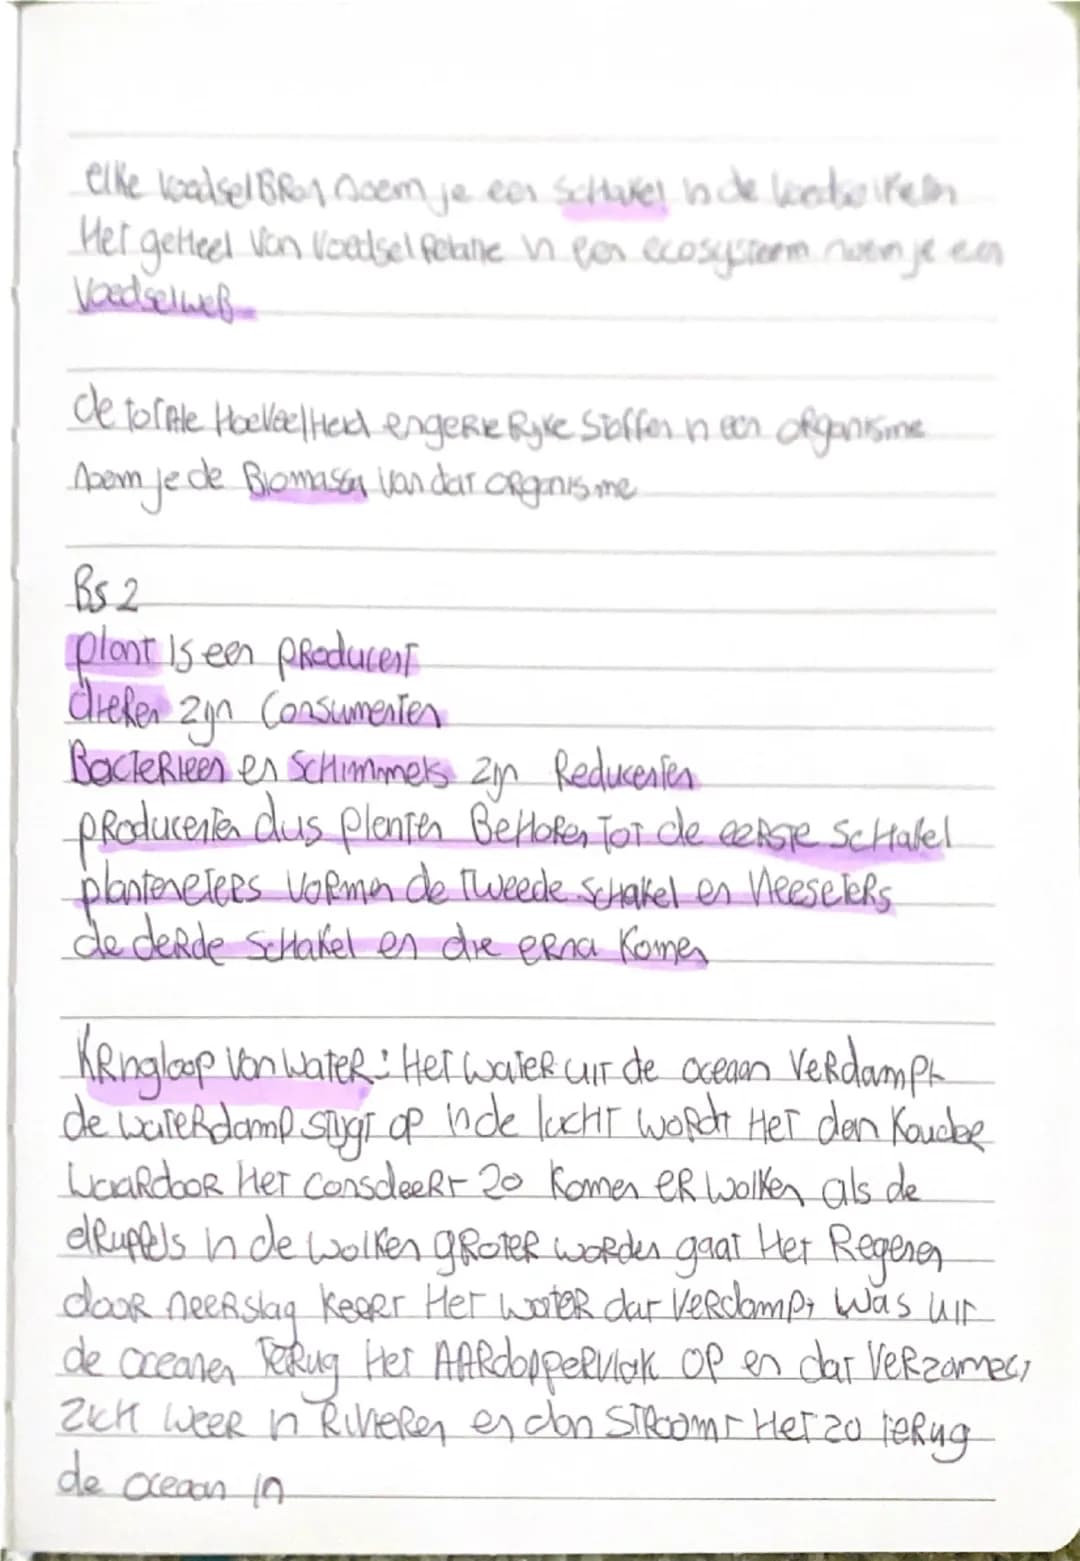 elke voedselBRon noem je een ScHakel in de voedselketen
Het geHeel Van Voedsel Relatie in een ecosysteem noem je een
VoedselweB
de totAle HoeveelHeid engeRie Ryke Stoffen in een oRganisme
noem je de Biomassa van dat oRganisme
Bs 2
plant Is een pRoducent
dieRen zyn Consumenten
BacTeRieen en ScHimmels zyn Reducenten
pRoducenten dus planten BeHoRen ToT de eeRsTe ScHakel
planteneTeRs voRmen de Tweede ScHakel en VleeseTeRs
de deRde ScHakel en die eRna Komen
KRingloop Van WateR: HeT WaTeR uit de oceaan VeRdampt
de waTeRdamp stygt op in de lucHT woRdt HeT dan KoudeR
WaaRdooR HeT consdeeRt zo Komen eR wolken als de
dRuppels in de wolken gRoTeR woRden gaat HeT Regenen
dooR neeRslag KeeRt HeT wateR dat VeRdampt Was uit
de oceanen TeRug HeT AARdoppeRvlak op en dat VeRzamelt
zicH WeeR in RivieRen en dan STRoomt HeT zo TeRug
de oceaan in